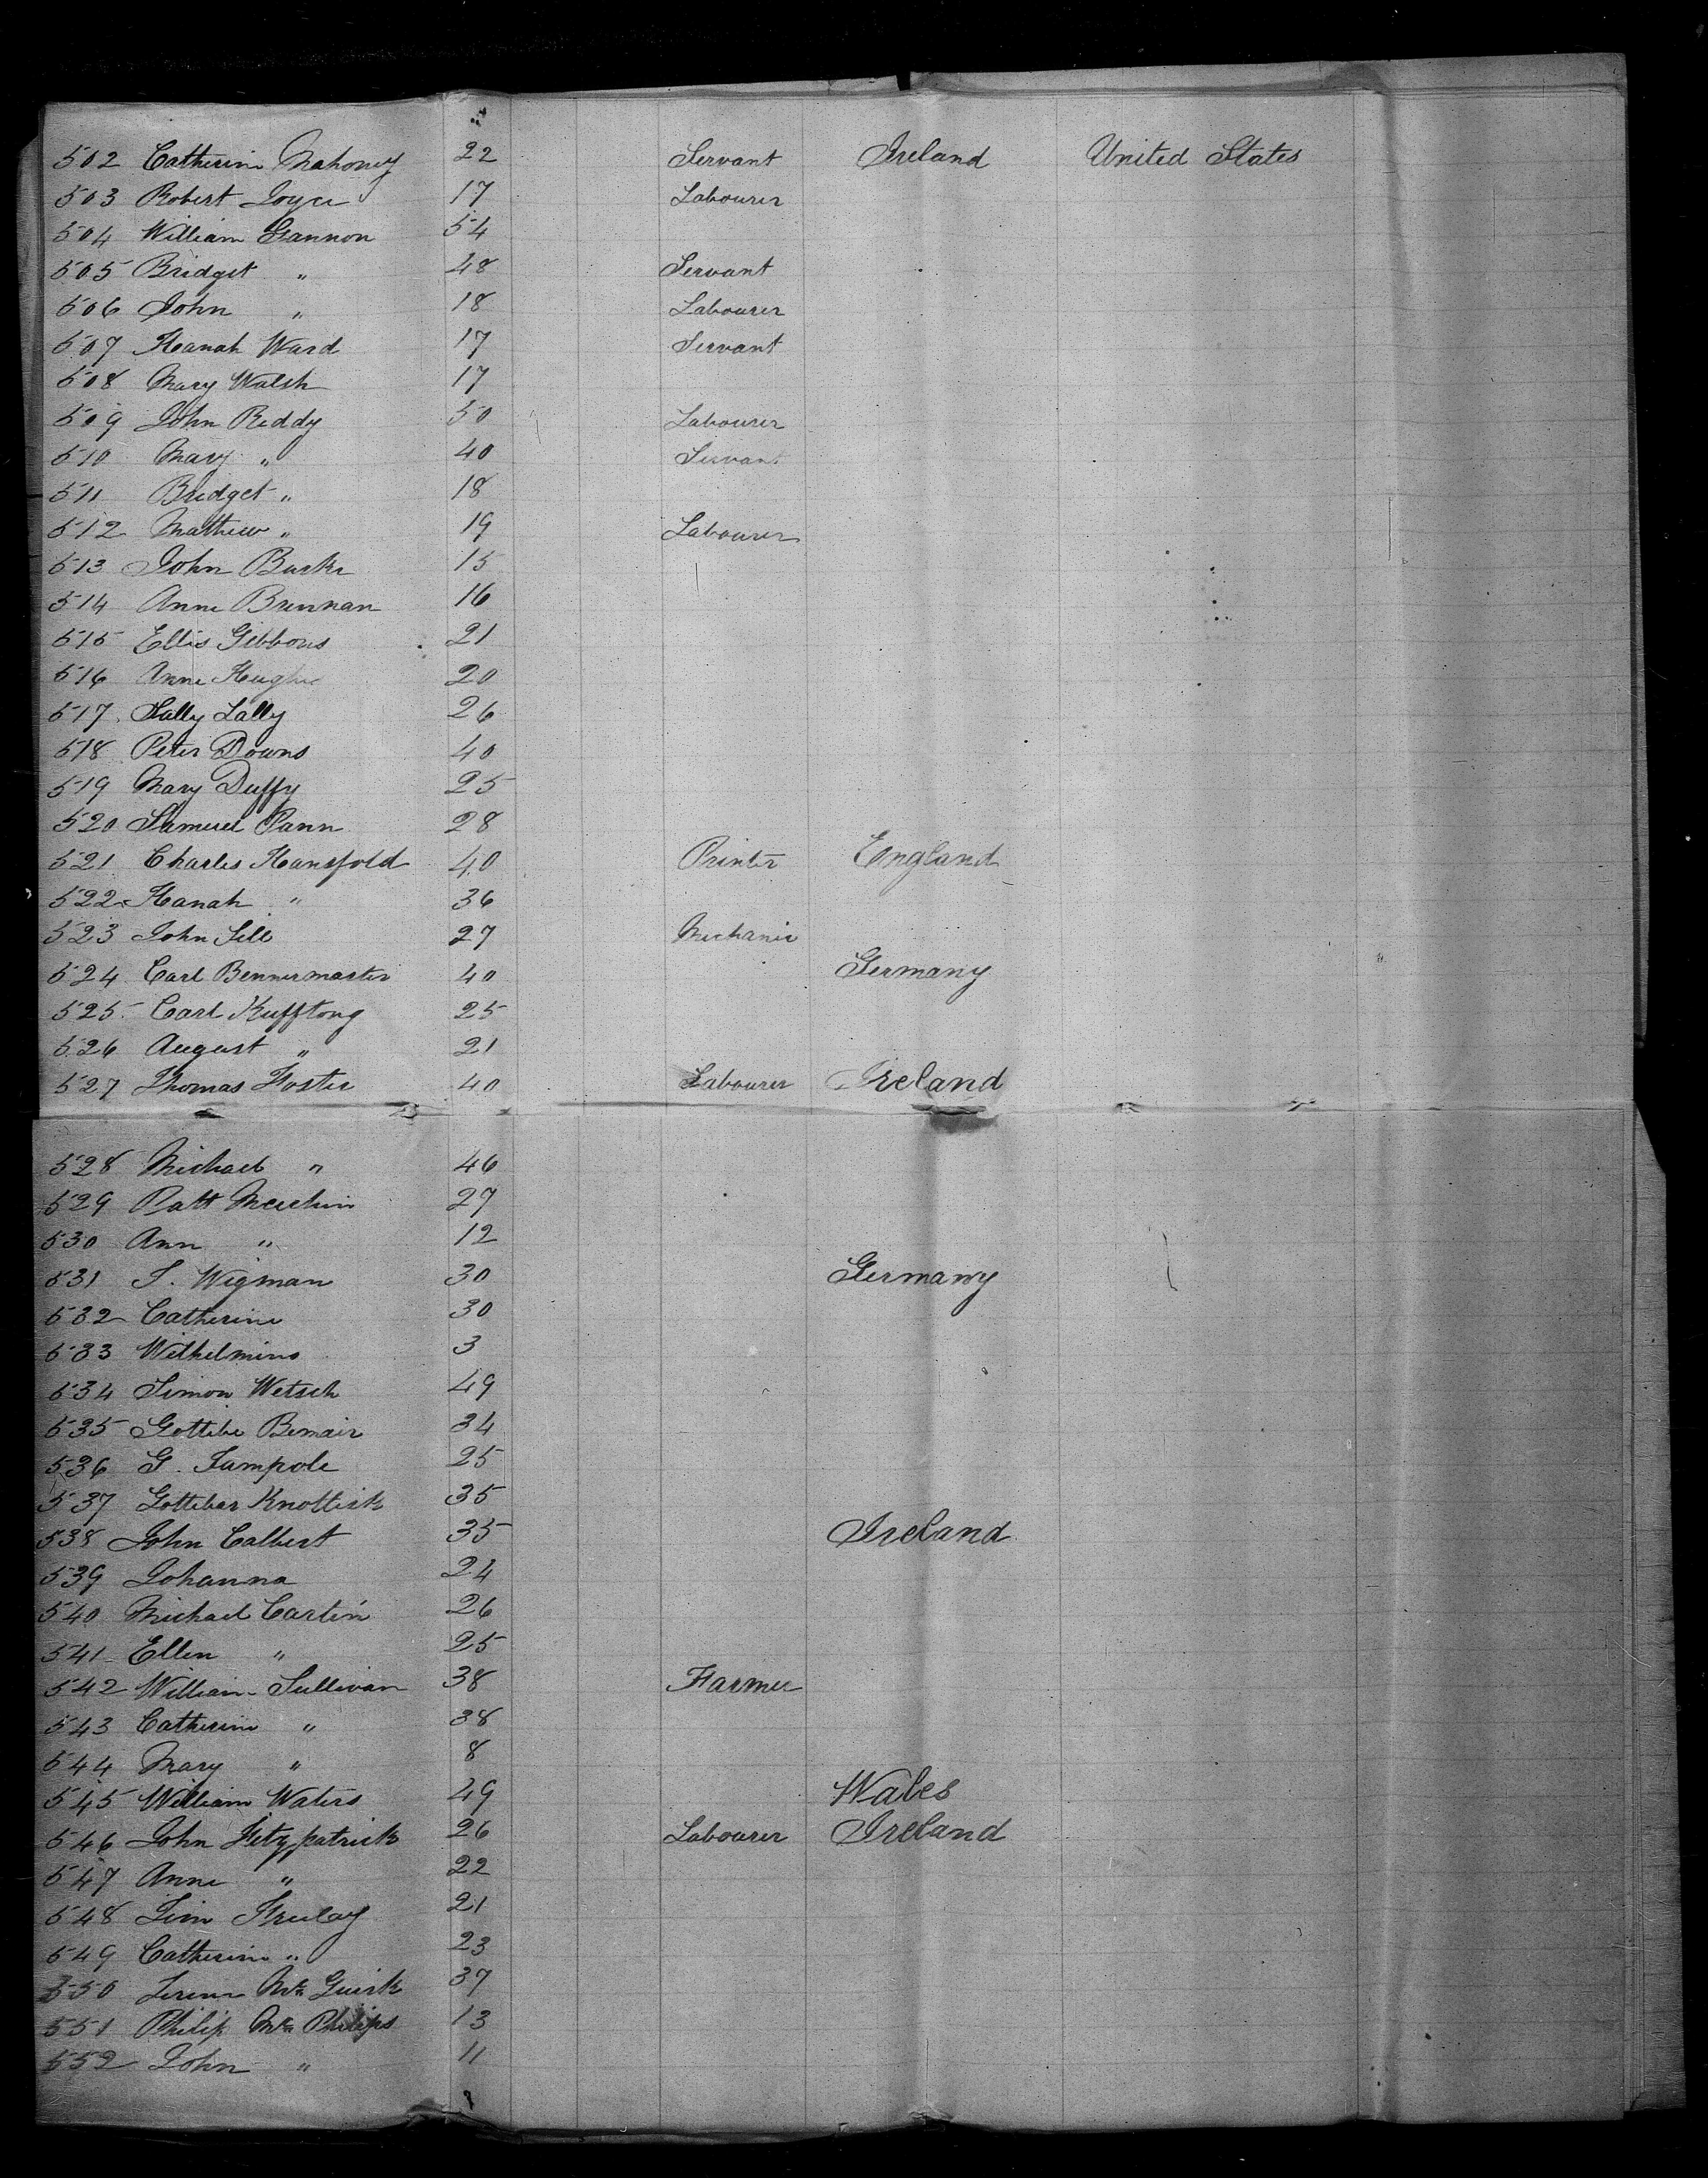 502 Catherine Mahoney 22 Servant Ireland United States
503 Robert Joyce 17 Labourer
504 William Gannon 54
505 Bridget " 48 Servant
506 John " 18 Labourer
507 Hanah Ward 17 Servant
508 Mary Walsh 17
509 John Reddy 50 Labourer
510 Mary " 40 Servant
511 Bridget " 18
512 Mathew " 19 Labourer
513 John Burke 15
514 Anne Brennan 16
515 Ellis Gibbons 21
516 Anne Hughes 20
517 Sally Lally 26
518 Peter Downs 40
519 Mary Duffy 25
520 Samuel Pann 28
521 Charles Hansfold 40 Printer England
522 Hanah " 36
523 John Sill 27 Mechanic
524 Carl Bennermaster 40 Germany
525 Carl Kufftong 25
526 August " 21
527 Thomas Foster 40 Labourer Ireland
528 Michael " 46
529 Patt 27
530 Ann " 12
531 S. Wigman 30 Germany
532 Catherine 30
533 Wilhelmins 3
534 Simon Wetsch 49
535 Gottibe Bemair 34
536 G. Jumpole 25
537 Gottibar Knottisk 35
538 John Calbert 35 Ireland
539 Johanna 24
540 Michael Cartin 26
541 Ellen " 25
542 William Sullivan 38 Farmer
543 Catherine " 38
544 Mary " 8
545 William Waters 49 Wales
546 John Fitzpatrick 26 Labourer Ireland
547 Anne " 22
548 Tim 21
549 Catherine " 23
550 Mc Guirk 37
551 Philip Mc Philips 13
552 John " 11